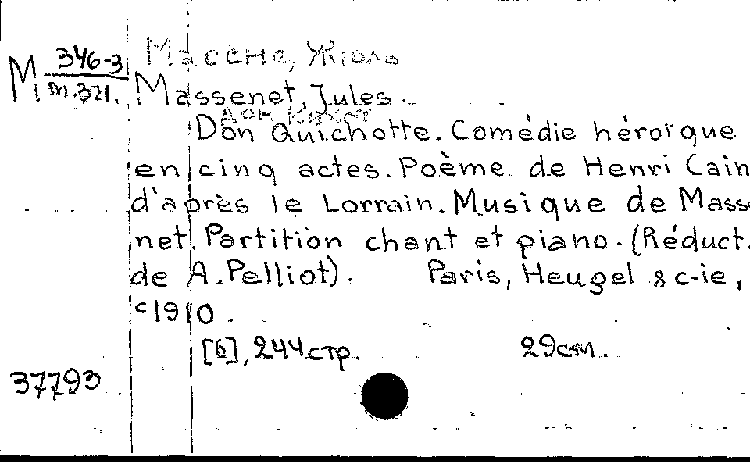 М 346-3
m.321.
Массне, Жюль
Massenet, Jules.
Дон Кихот
Don Quichotte. Comédie héroïque
en cinq actes. Poème de Henri Cain
d'après le Lorrain. Musique de Masse
net. Partition chant et piano. (Réduct.
de A. Pelliot). Paris, Heugel & c-ie,
c1910.
[6], 244 стр. 29cm.
37793